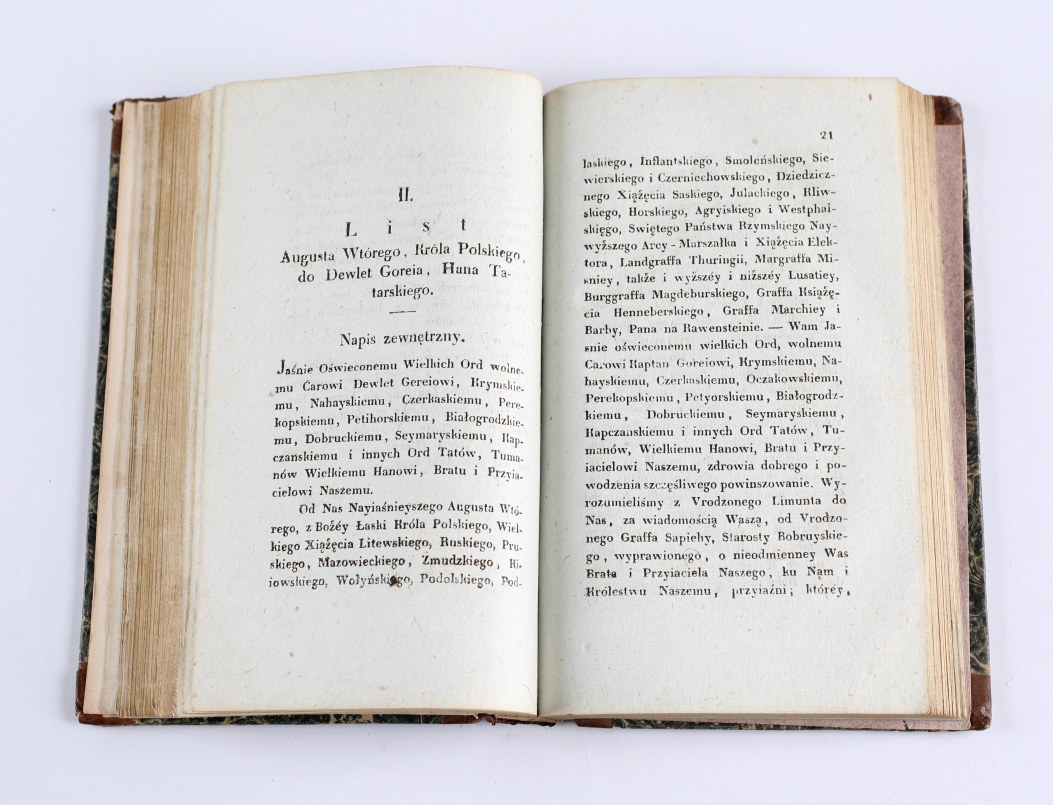 II.
List
Augusta Wtórego, Króla Polskiego,
do Dewlet Goreia, Hana Ta-
tarskiego.
Napis zewnętrzny.
Jaśnie Oświeconemu Wielkich Ord wolne-
mu Carowi Dewlet Gereiowi, Krymskie-
mu, Nahayskiemu, Czerkaskiemu, Pere-
kopskiemu, Petihorskiemu, Białogrodzkie-
mu, Dobruckiemu, Seymaryskiemu, Kap-
czańskiemu i innych Ord Tatów, Tuma-
nów Wielkiemu Hanowi, Bratu i Przyia-
cielowi Naszemu.
Od Nas Nayiaśnieyszego Augusta Wtó-
rego, z Bożéy Łaski Króla Polskiego, Wiel-
kiego Xiążęcia Litewskiego, Ruskiego, Pru-
skiego, Mazowieckiego, Żmudzkiego, Ki-
iowskiego, Wołyńskiego, Podolskiego, Pod-
21
laskiego, Inflantskiego, Smoleńskiego, Sie-
wierskiego i Czerniechowskiego, Dziedzicz-
nego Xiążęcia Saskiego, Julackiego, Kliw-
skiego, Horskiego, Agryiskiego i Westphal-
skięgo, Swiętego Państwa Rzymskiego Nay-
wyższego Arcy-Marszałka i Xiążęcia Elek-
tora, Landgraffa Thuringii, Margraffa Mi-
śniey, także i wyższéy i niższéy Lusatiey,
Burggraffa Magdeburskiego, Graffa Książę-
cia Henneberskiego, Graffa Marchiey i
Barby, Pana na Rawensteinie. — Wam Ja-
śnie oświeconemu wielkich Ord, wolnemu
Carowi Kaptan Goreiowi, Krymskiemu, Na-
hayskiemu, Czerkaskiemu, Oczakowskiemu,
Perekopskiemu, Petyorskiemu, Białogrodz-
kiemu, Dobruckiemu, Seymaryskiemu,
Kapczanskiemu i innych Ord Tatów, Tu-
manów, Wielkiemu Hanowi, Bratu i Przy-
iacielowi Naszemu, zdrowia dobrego i po-
wodzenia szczęśliwego powinszowanie. Wy-
rozumieliśmy z Vrodzonego Limunta do
Nas, za wiadomością Waszą, od Vrodzo-
nego Graffa Sapiehy, Starosty Bobruyskie-
go, wyprawionego, o nieodmienney Was
Brata i Przyiaciela Naszego, ku Nam i
Królestwu Naszemu, przyiaźni; którey,